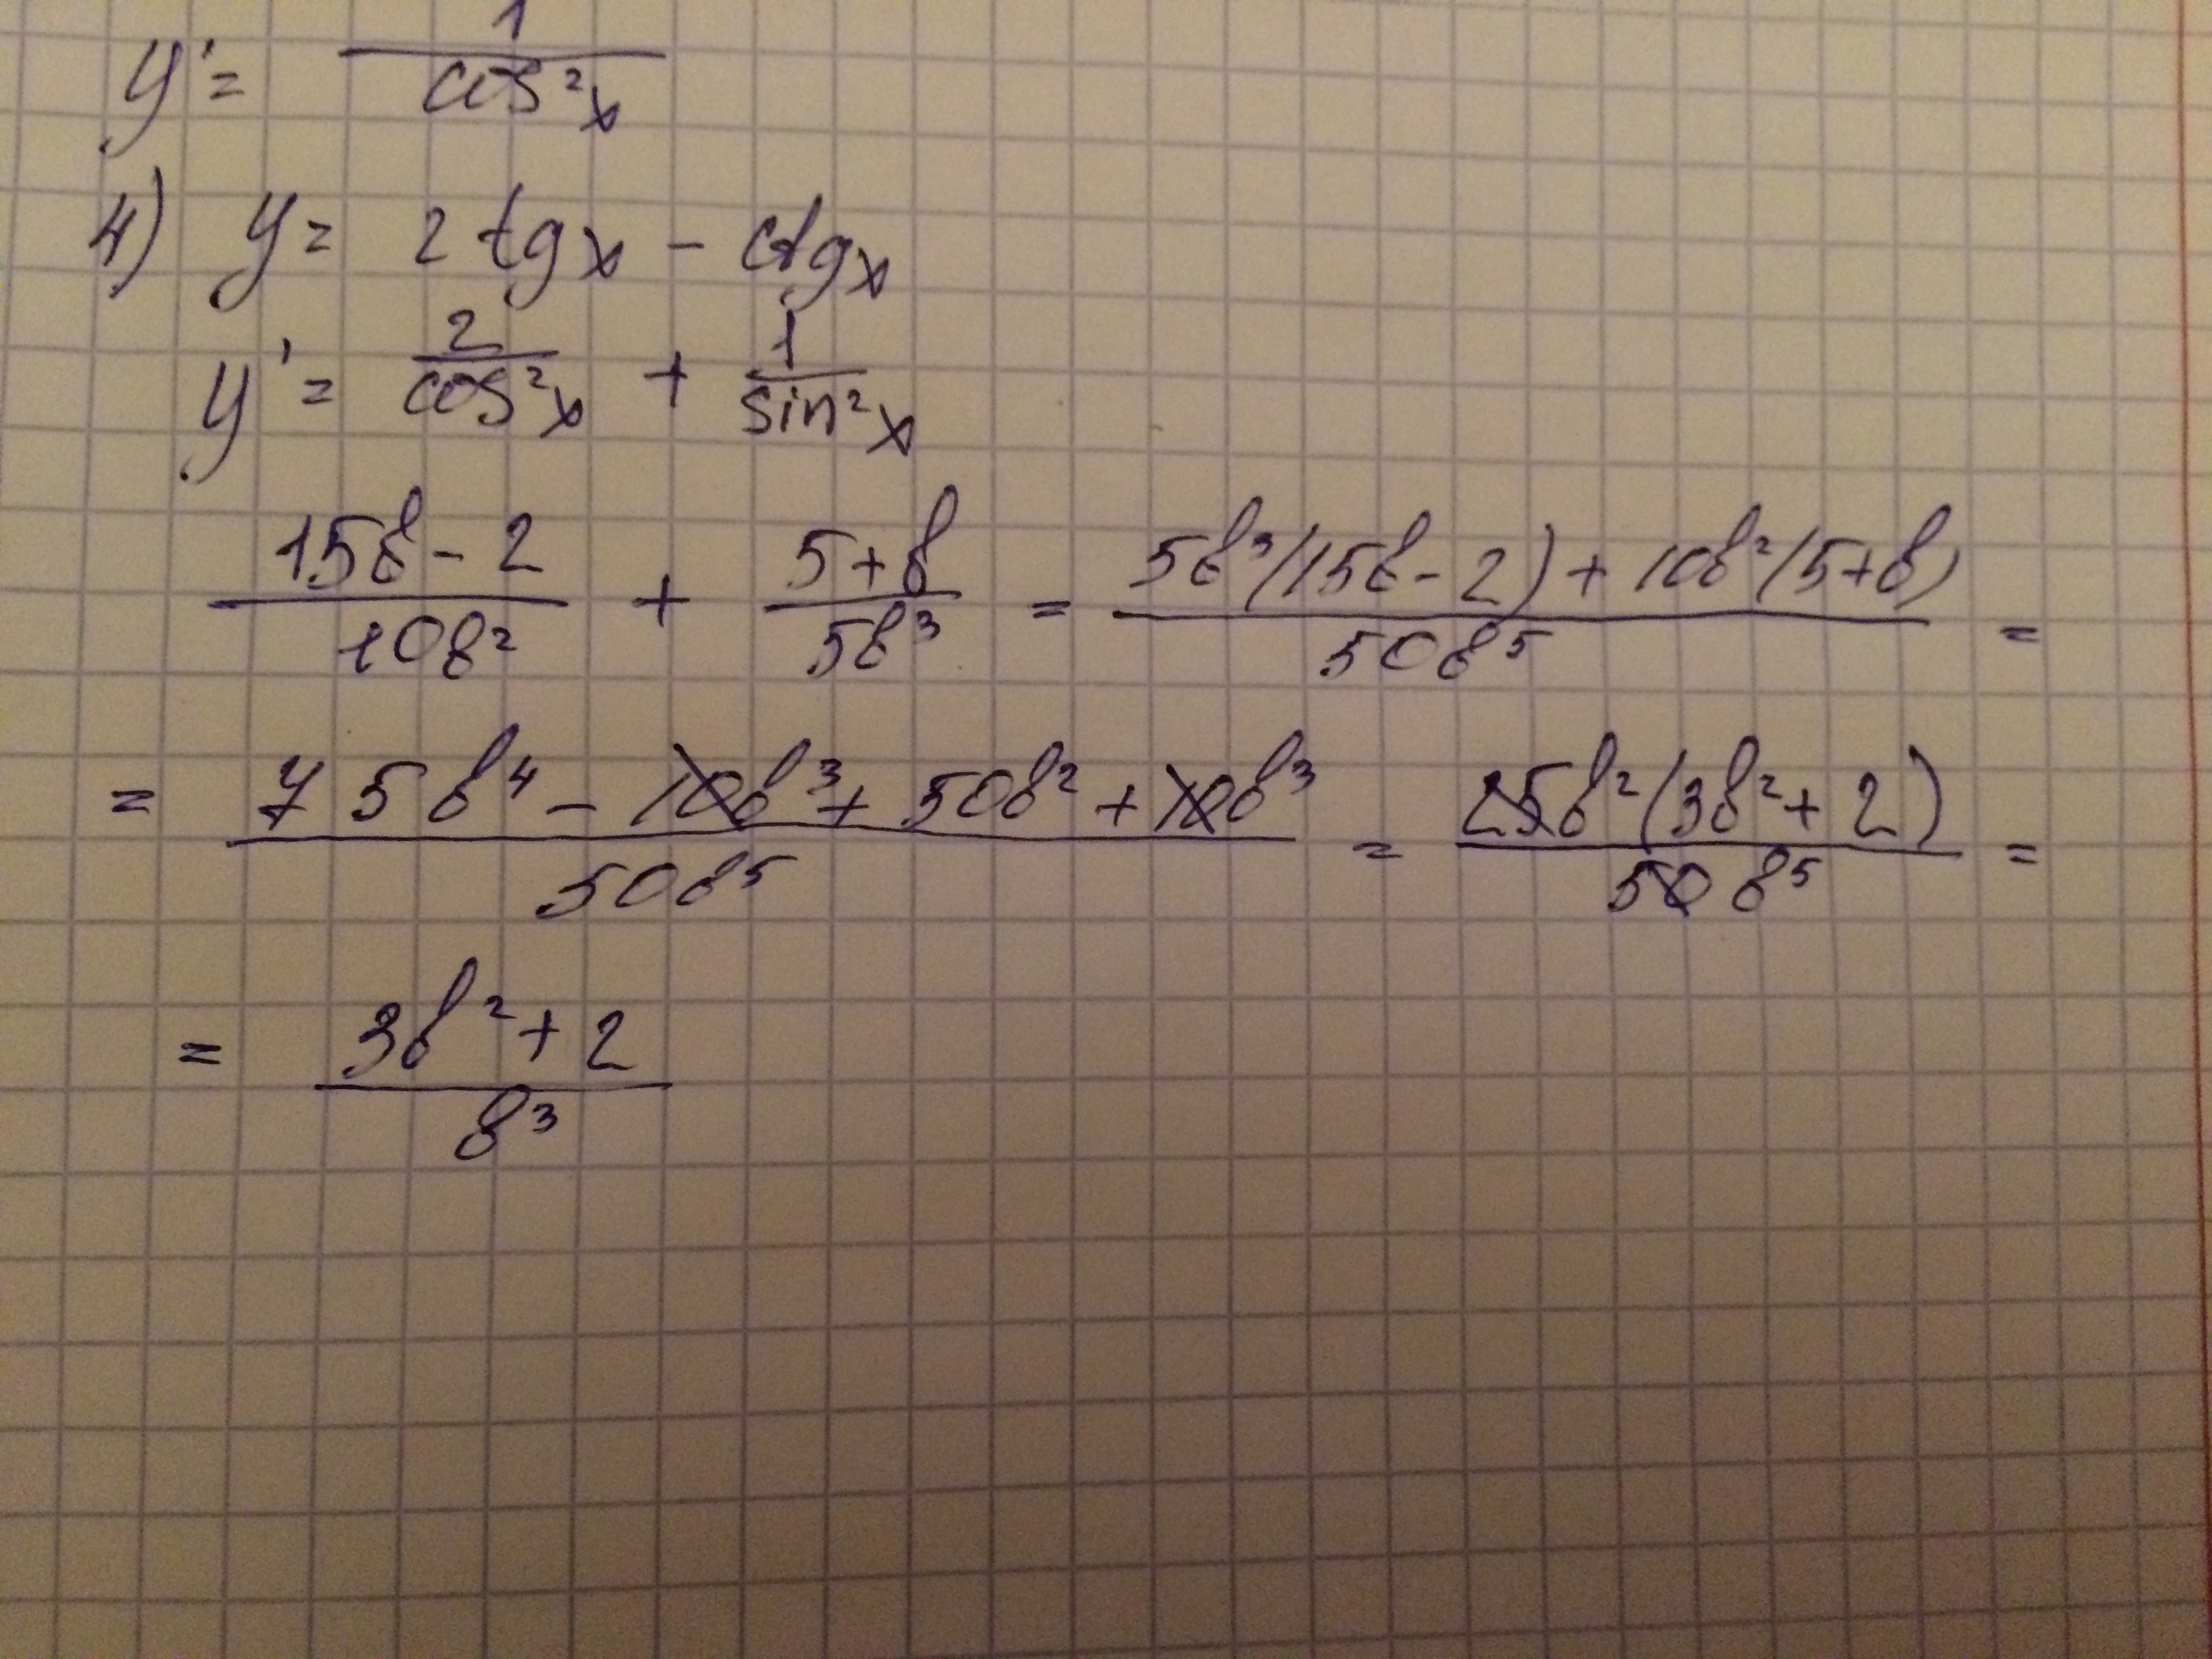 y' = 1/cos²x
4) y = 2 tgx - ctgx
y' = 2/cos²x + 1/sin²x
(15b - 2)/(10b²) + (5 + b)/(5b³) = (5b³(15b - 2) + 10b²(5+b))/(50b⁵) =
= (75b⁴ - 10b³ + 50b² + 10b³)/(50b⁵) = (25b²(3b² + 2))/(50b⁵) =
= (3b² + 2)/(b³)